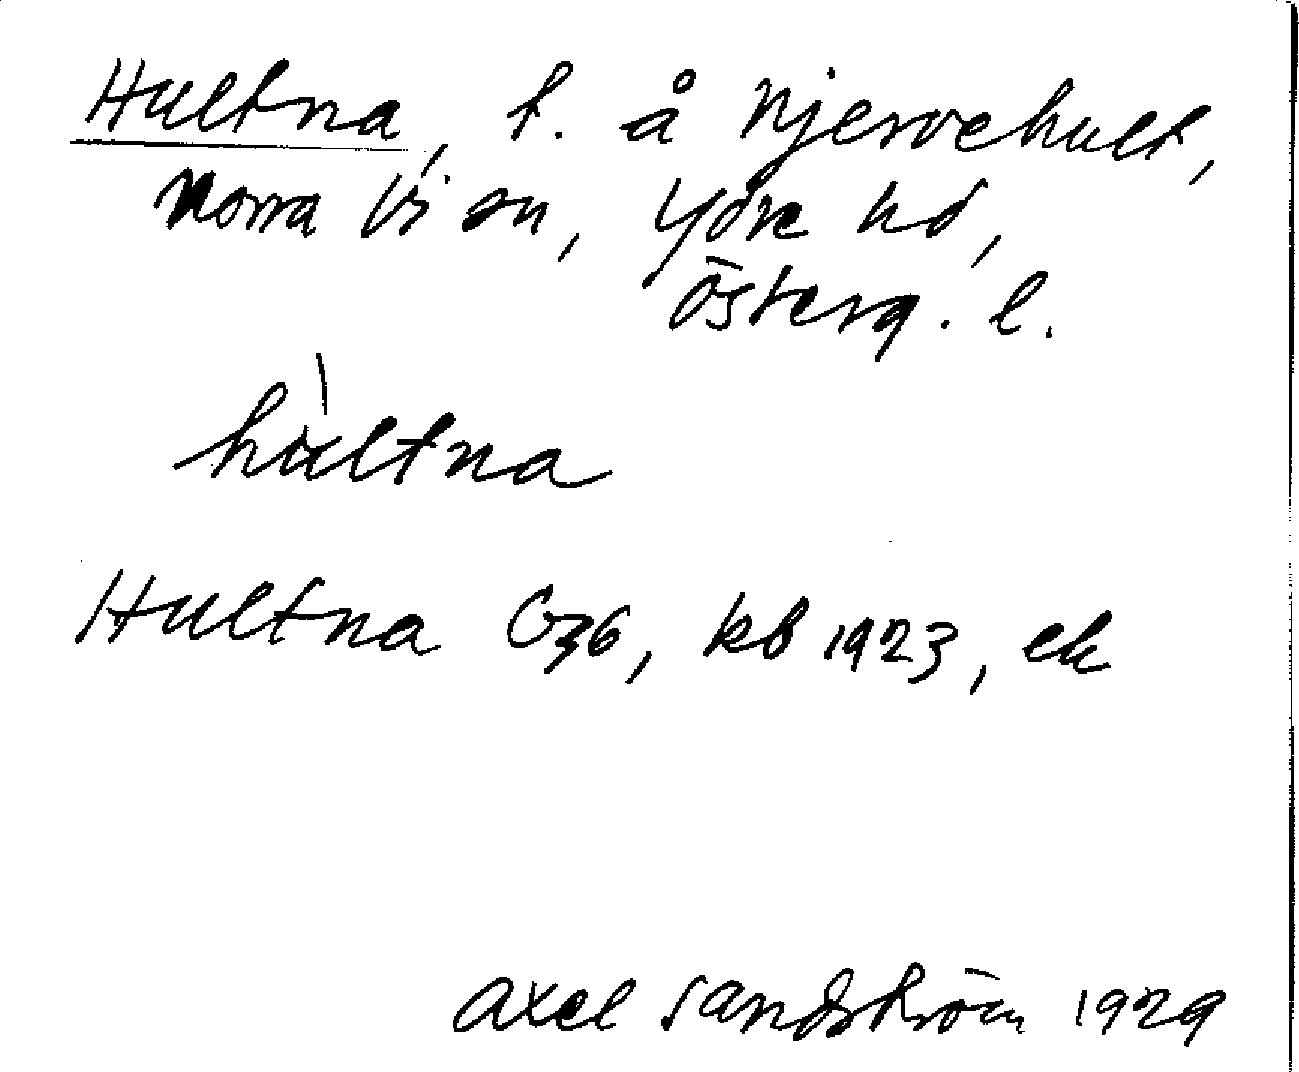 Hultna, t. å Njervehult,
Norra Vi sn, Ydre hd,
Österg. l.
hùltna
Hultna G36, kb 1923, ek
Axel Sandström 1929